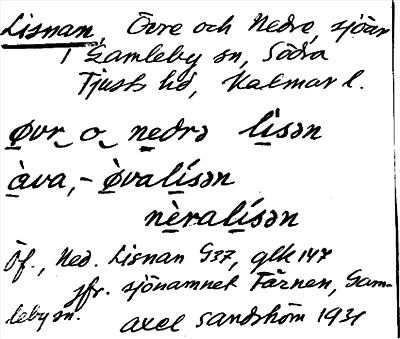 Lisnan, Övre och Nedre, sjöar
i Gamleby sn, Södra
Tjusts hd, Kalmar l.
øvr o nedrə lisən
àva, – òvalísən
nèralísən
Öf., Ned. Lisnan G37, glk 147
jfr. sjönamnet Färnen, Gam-
leby sn. Axel Sandström 1931